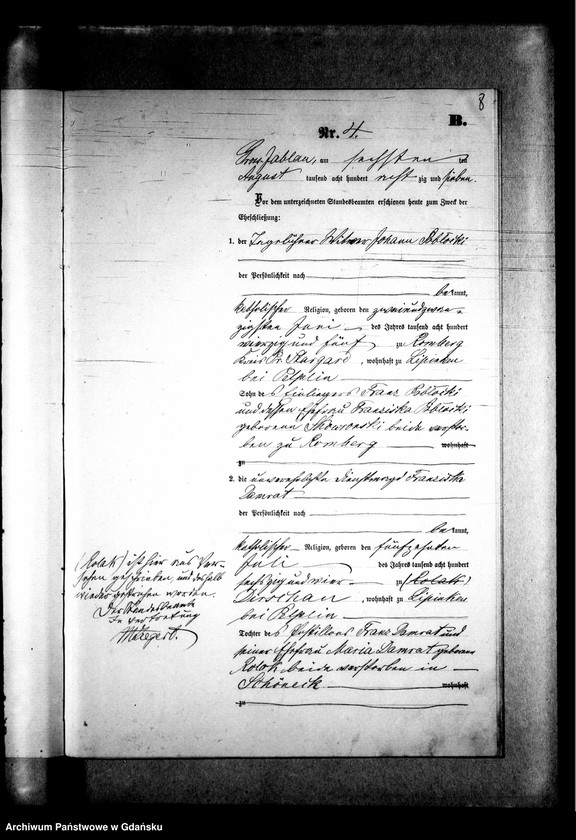 8
B.
Nr. 4.
Gross Jablau, am sechsten ten
August tausend acht hundert acht zig und sieben.
Vor dem unterzeichneten Standesbeamten erschienen heute zum Zweck der
Eheschließung:
1. der Tagelöhner Witwer Johann
der Persönlichkeit nach
be kannt,
katholischer Religion, geboren den zweiundzwan-
zigsten Juni des Jahres tausend acht hundert
vierzig und fünf zu Romberg
Kreis Pr. Stargard, wohnhaft zu Lipinken
bei Pelplin
Sohn des Einliegers Franz
und dessen Ehefrau Franziska
geborene Skowronski beide verstor-
ben zu Romberg wohnhaft
zu
2. die unverehelichte Dienstmagd Franziska
Damrat
der Persönlichkeit nach
be kannt,
katholischer Religion, geboren den fünfzehnten
Juli des Jahres tausend acht hundert
sechszig und vier zu (Kolak)
Dirschau, wohnhaft zu Lipinken
bei Pelplin
Tochter des Postillons Franz Damrat und
seiner Ehefrau Maria Damrat geborene
Kolak beide verstorben in
Schöneck wohnhaft
zu
(Kolak) ist hier aus Ver-
sehen geschrieben und deshalb
wieder gestrichen worden.
Der Standesbeamte
In Vertretung
Archiwum Państwowe w Gdańsku